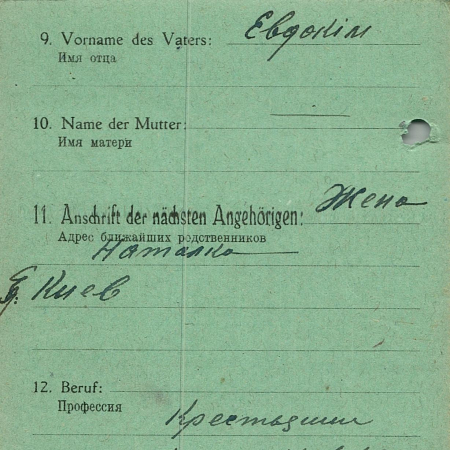 9. Vorname des Vaters: Евдокім
Имя отца
10. Name der Mutter:
Имя матери
11. Anschrift der nächsten Angehörigen: Жена
Адрес ближайших родственников
Наталка
г. Киев
12. Beruf:
Профессия
Крестьянин